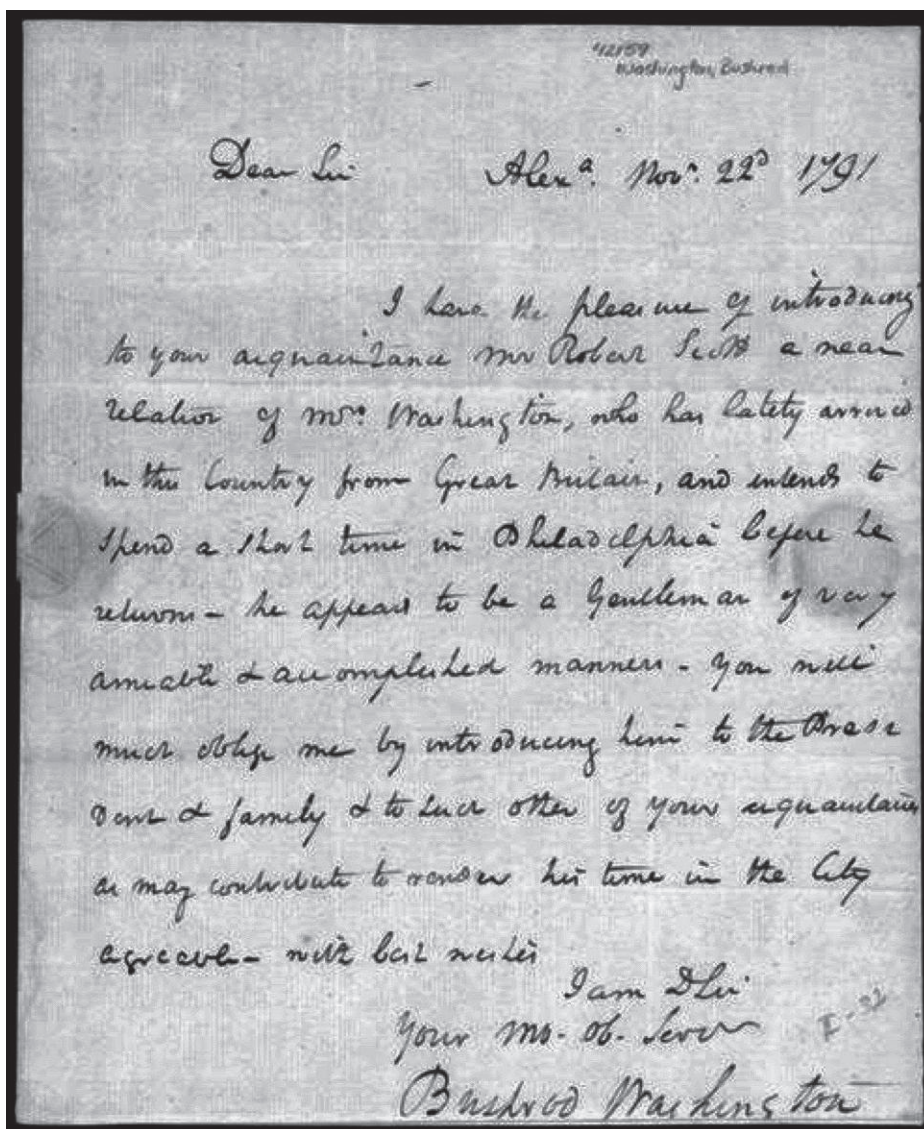 42159
Washington, Bushrod
Dear Sir Alexa. Novr. 22d 1791
I have the pleasure of introducing
to your acquaintance Mr Robert Scott a near
relation of Mrs. Washington, who has lately arrived
in this Country from Great Britain, and intends to
spend a short time in Philadelphia before he
returns - he appears to be a Gentleman of very
amiable & accomplished manners - You will
much oblige me by introducing him to the Presi
dent & family & to such other of your acquaintance
as may contribute to render his time in the City
agreeable - with best wishes
I am D Sir
Your Mo. Ob. Serv
Bushrod Washington
I-32